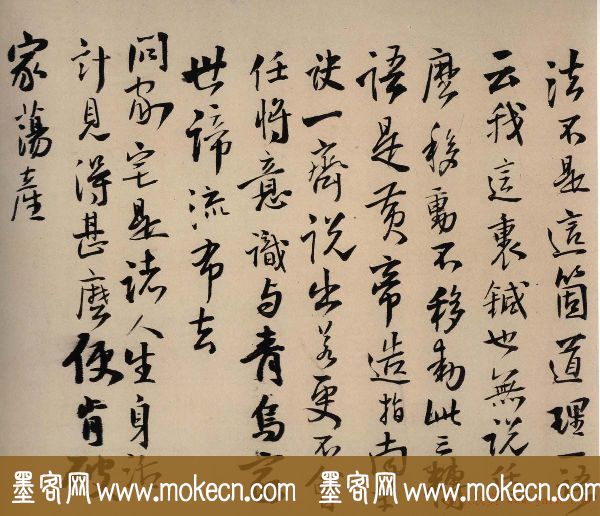 法不是這箇道理一語
云我這裏鍼也無說什
麼移動不移動此三轉
語是黃帝造指南車
訣一齊說出若更不會
任將意識与青烏家
世諦流布去
問家宅是諸人生身活
計見得甚麼便肯破
家蕩產
墨客网 www.mokecn.com 墨客网 www.mokecn.com